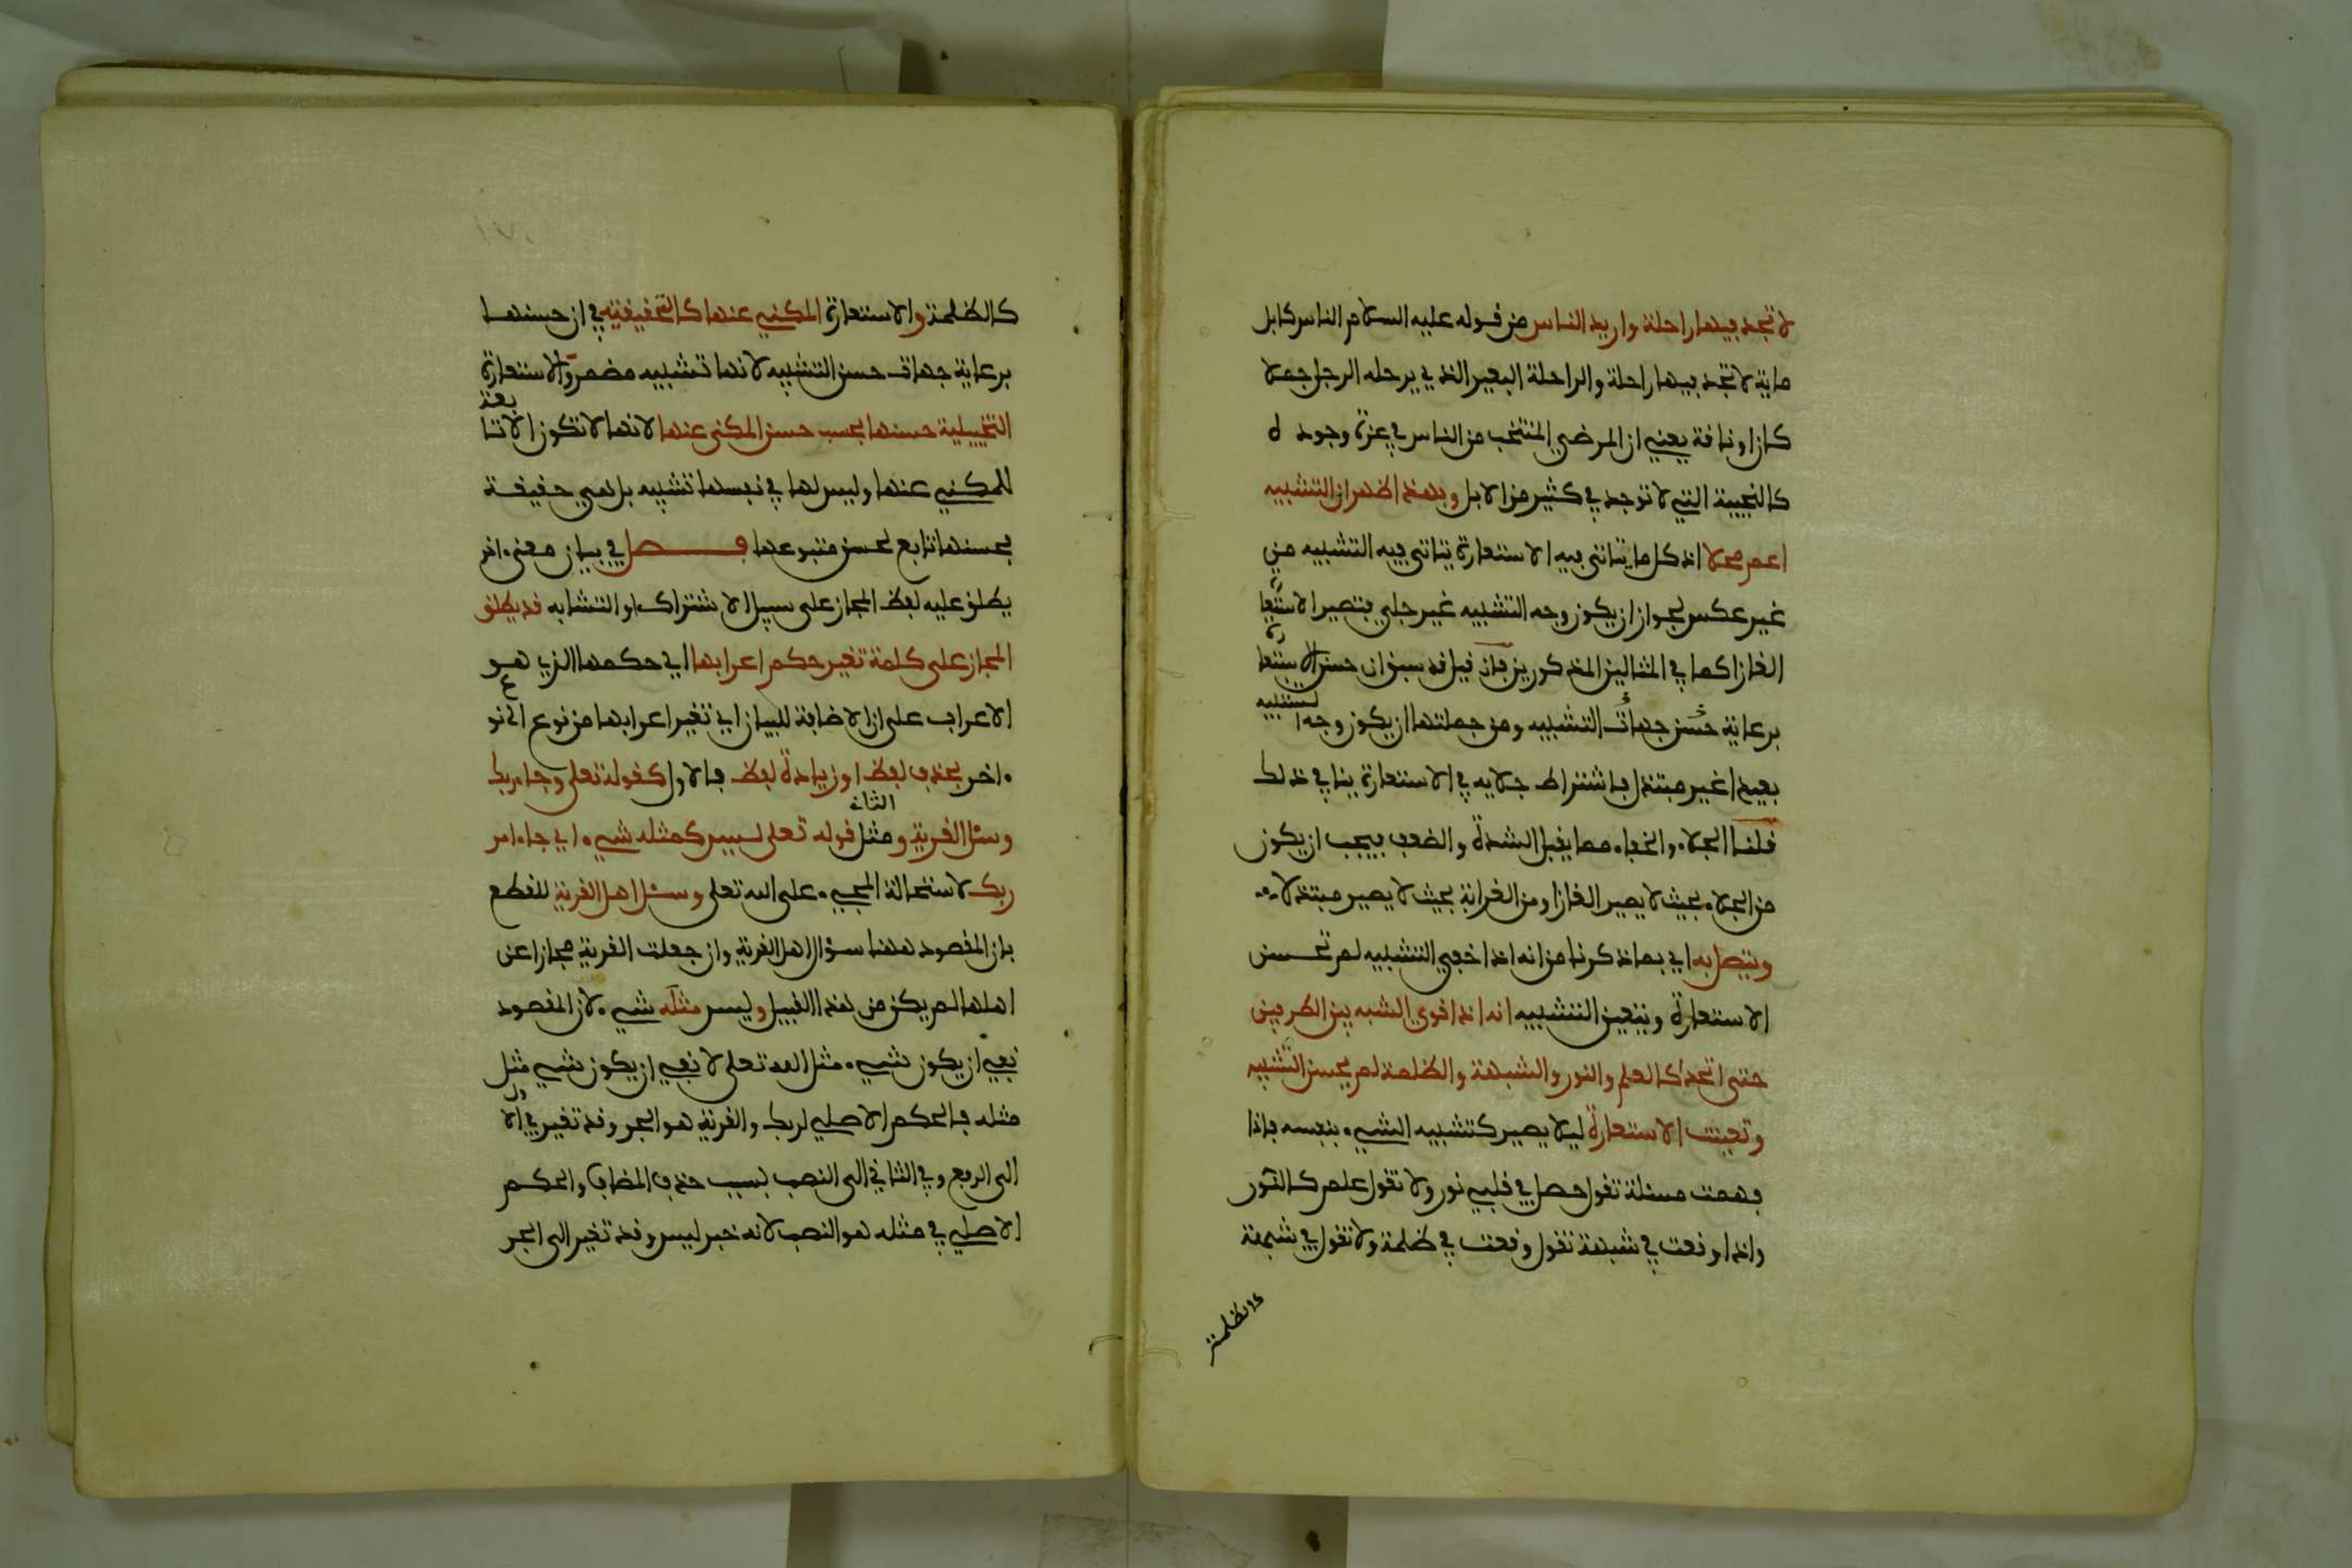 لا تجد فيها راحلة واريد الناس من قوله عليه السلام الناس كابل
ماية لا تجد فيها راحلة والراحلة البعير الذي يرحله الرجل جملا
كان او ناقة يعني ان المرضي المنتخب من الناس في عزة وجوده
كالنجيبة التي لا توجد في كثير من الابل وبهذا ظهر ان التشبيه
اعم محلا اذ كل ما يتاتى فيه الاستعارة يتاتى فيه التشبيه من
غير عكس لجواز ان يكون وجه التشبيه غير جلي فتصير الاستعارة
الغازا كما في المثالين المذكورين فان قيل قد سبق ان حسن الاستعارة
برعاية حسن جهات التشبيه ومن جملتها ان يكون وجه التشبيه
بعيدا غير مبتذل فاشتراط جلايه في الاستعارة ينافي ذلك
قلنا الجلاء والخفاء مما يقبل الشدة والضعف فيجب ان يكون
من الجلاء بحيث لا يصير الغازا ومن الغرابة بحيث لا يصير مبتذلا
ويتصل به اي بما ذكرنا من انه اذا خفي التشبيه لم تحسن
الاستعارة ويتعين التشبيه انه اذا قوي الشبه بين الطرفين
حتى اتحدا كالعلم والنور والشبهة والظلمة لم يحسن التشبيه
وتعينت الاستعارة ليلا يصير كتشبيه الشيء بنفسه فاذا
فهمت مسئلة تقول حصل في قلبي نور ولا تقول علم كالنور
واذا وقعت في شبهة تقول وقعت في ظلمة ولا تقول في شبهة
كالظلمة
كالظلمة والاستعارة المكني عنها كالتحقيقية في ان حسنها
برعاية جهات حسن التشبيه لانها تشبيه مضمر والاستعارة
التخييلية حسنها بحسب حسن المكنى عنها لانها لا تكون الا تابعة
للمكني عنها وليس لها في نفسها تشبيه بل هي حقيقة
فحسنها تابع لحسن متبوعها فصل في بيان معنى اخر
يطلق عليه لفظ المجاز على سبيل الاشتراك او التشابه قد يطلق
المجاز على كلمة تغير حكم اعرابها اي حكمها الذي هو
الاعراب على ان الاضافة للبيان اي تغير اعرابها من نوع الى نوع
اخر بحذف لفظ او زيادة لفظ فالاول كقوله تعلى وجاء ربك
وسئل القرية ومثل الثاني قوله تعلى ليس كمثله شيء اي جاء امر
ربك لاستحالة المجيء على الله تعلى وسئل اهل القرية للقطع
بان المقصود ههنا سؤال اهل القرية وان جعلت القرية مجازا عن
اهلها لم يكن من هذا القبيل وليس مثله شيء لان المقصود
نفي ان يكون شيء مثل الله تعلى لا نفي ان يكون شيء مثل
مثله فالحكم الاصلي لربك والقرية هو الجر وقد تغير في الاول
الى الرفع وفي الثاني الى النصب بسبب حذف المضاف والحكم
الاصلي في مثله هو النصب لانه خبر ليس وقد تغير الى الجر